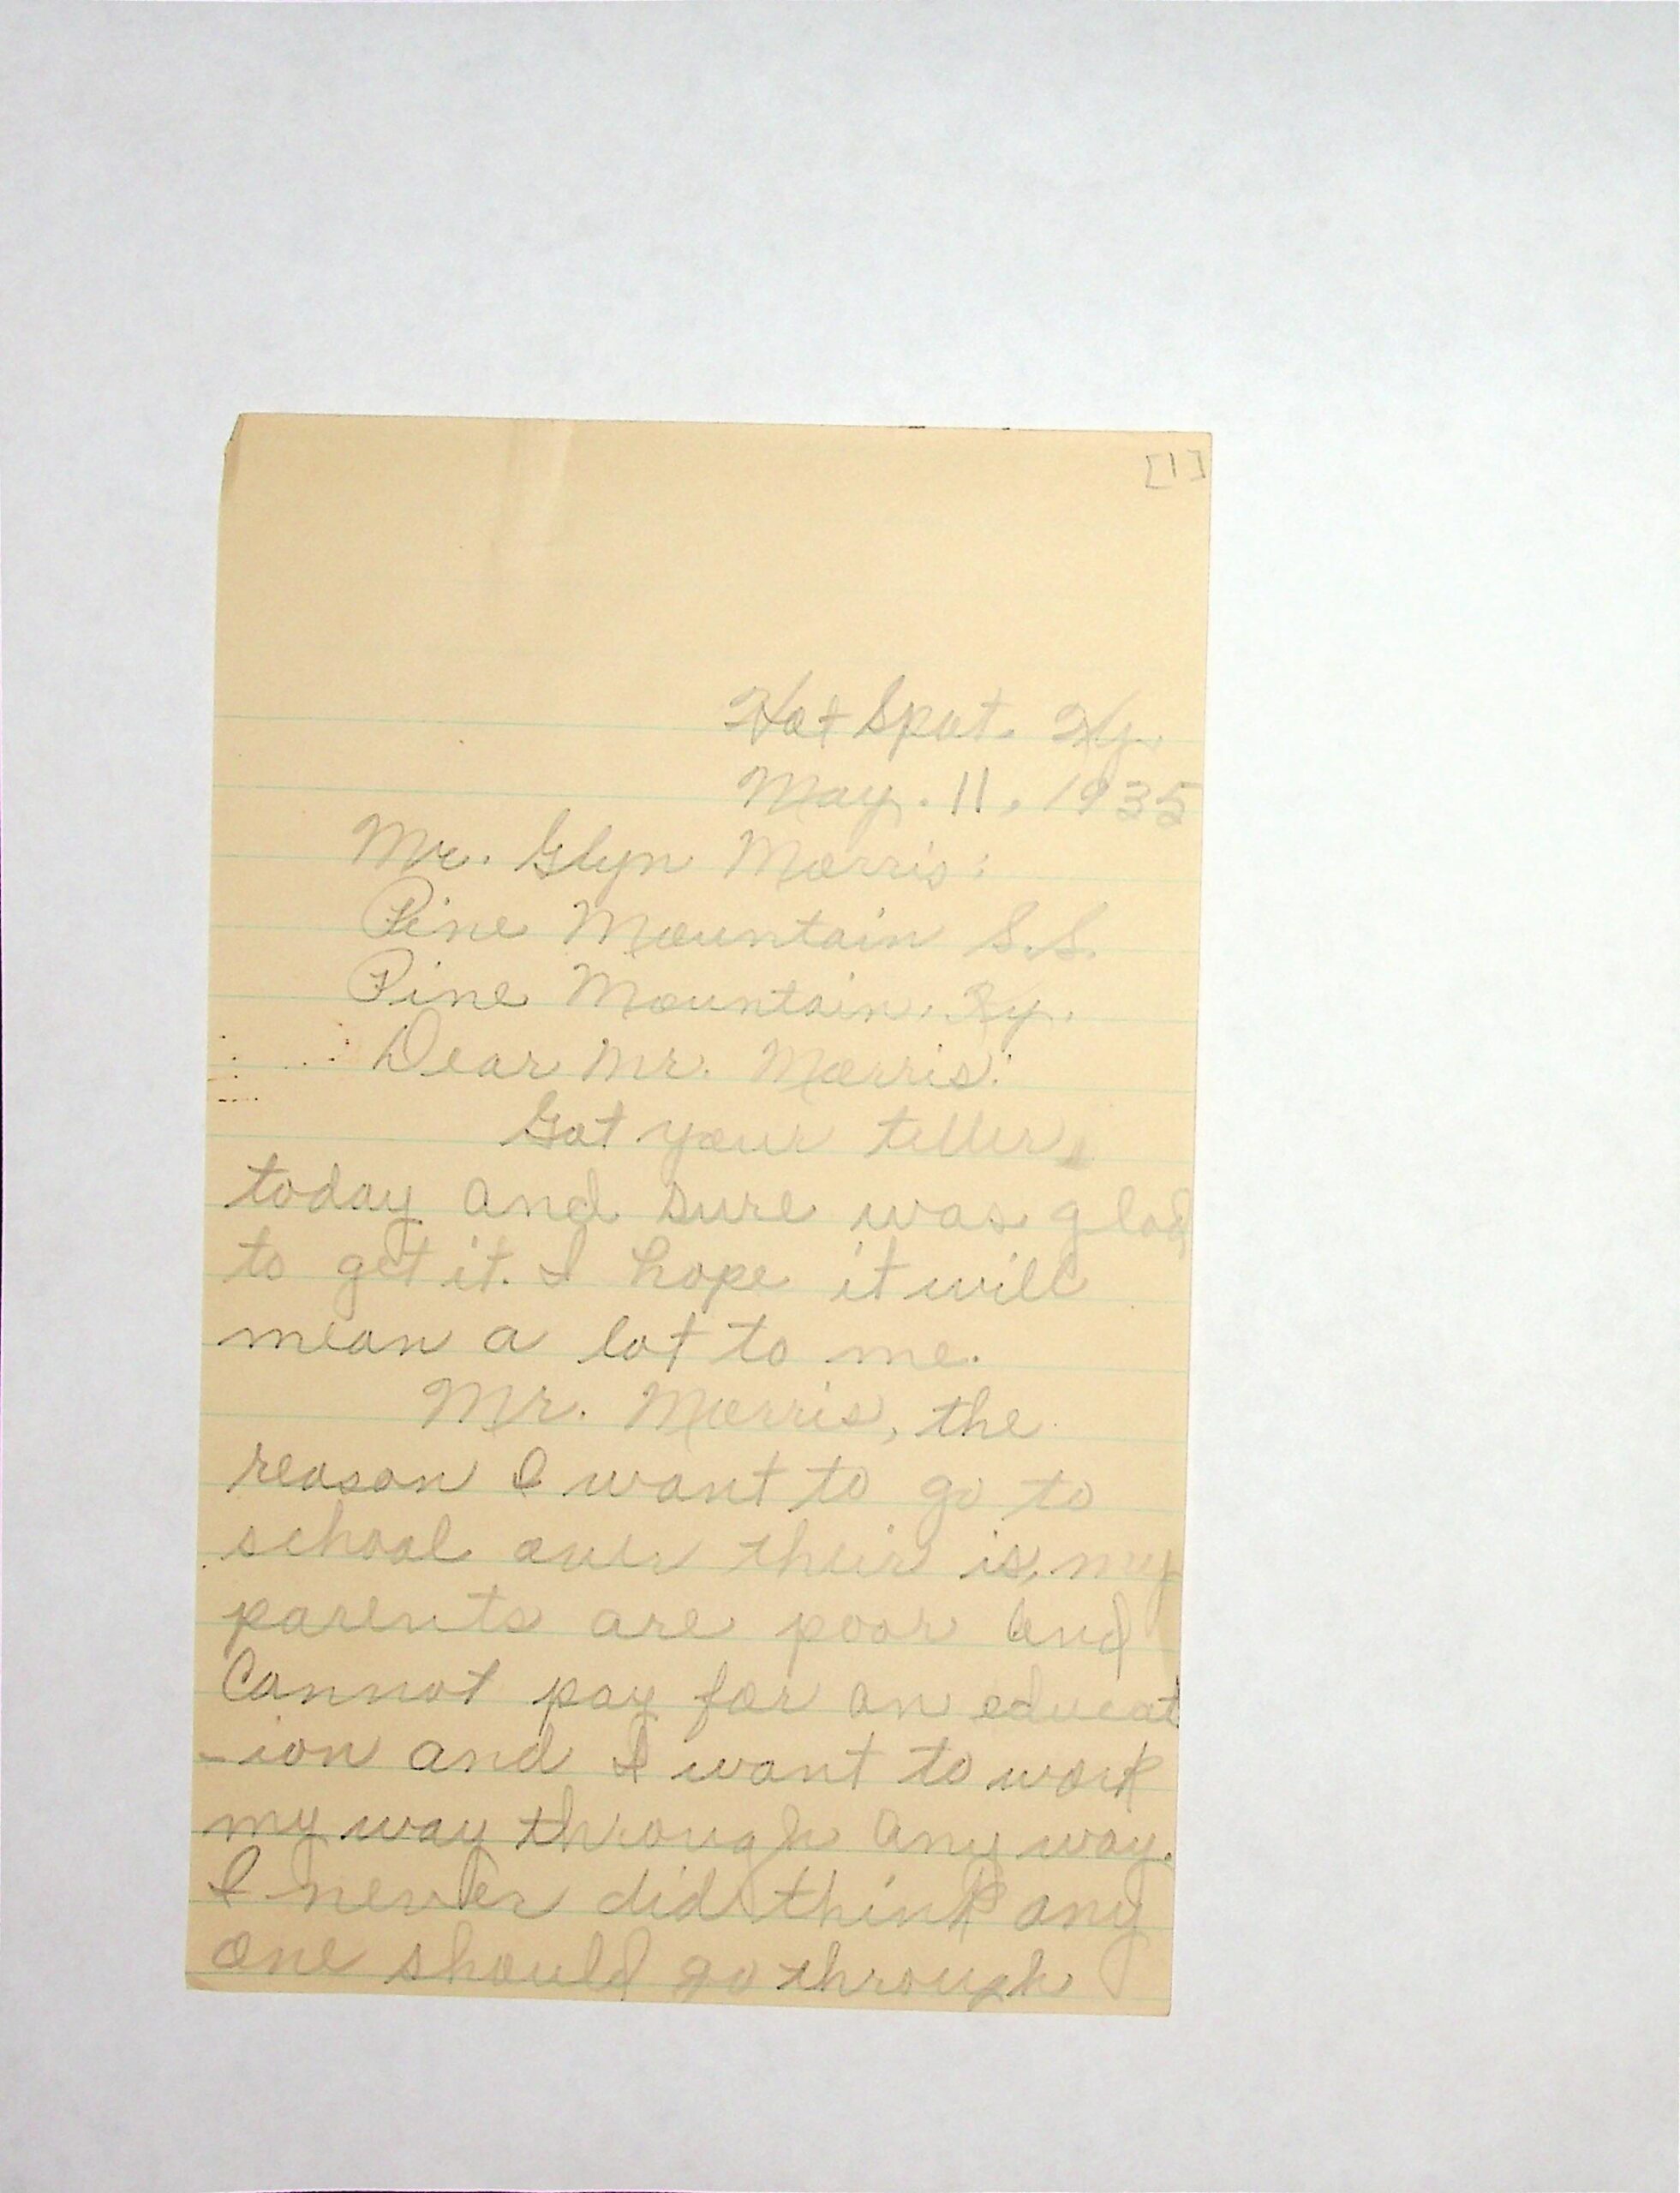 [1]
Hot Spot. Ky.
May. 11, 1935
Mr. Glyn Morris:
Pine Mountain S.S.
Pine Mountain. Ky.
Dear Mr. Morris:
Got your letter,
today and sure was glad
to get it. I hope it will
mean a lot to me.
Mr. Morris, the
reason I want to go to
school over their is, my
parents are poor and
Cannot pay for an educat
-ion and I want to work
my way through any way.
I never did think any
one should go through